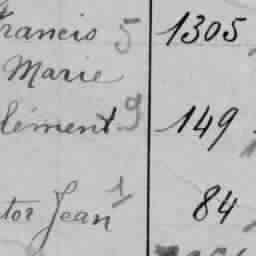 rancis 5 1305
Marie
lément 9 149
tor Jean 1 84